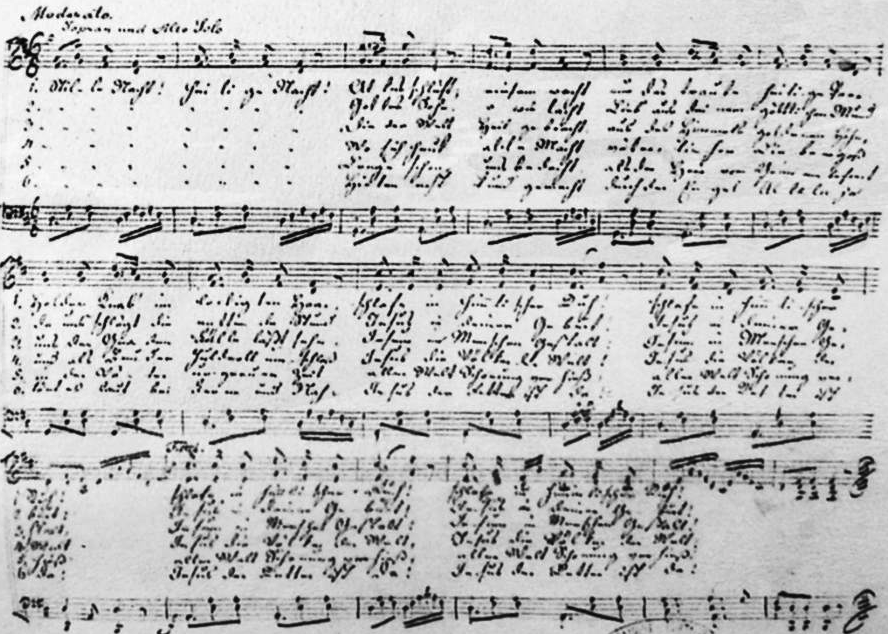 Moderato.
Sopran und Alto Solo
1. Stil le Nacht! hei li ge Nacht! Al les schläft, einsam wacht nur das traute heilige Paar
2. Gottes Sohn, o wie lacht Lieb aus deinem göttlichen Mund
3. Die der Welt Heil gebracht aus des Himmels goldenen Höhn
4. Wo sich heut alle Macht väterlicher Liebe ergoß
5. Lange schon uns bedacht als der Herr vom Grimm befreit
6. Hirten erst kund gemacht durch der Engel Al le lu ja
1. Holder Knab im lockigten Haar, schlafe in himmlischer Ruh! schlafe in himm li scher
2. da uns schlägt die rettende Stund Jesus in deiner Geburt! Jesus in deiner Ge-
3. uns der Gnaden Fülle läßt sehn Jesum in Menschen Gestalt! Jesum in Menschen Ge-
4. und als Bruder huldvoll umschloß Jesus die Völker der Welt! Jesus die Völker der
5. in der Väter urgrauer Zeit aller Welt Schonung verhieß! aller Welt Schonung ver-
6. tönt es laut bei Ferne und Nah: Jesus der Retter ist da! Jesus der Retter ist
1. Ruh! schlafe in himmlischer Ruh! schlafe in himmlischer Ruh!
2. burt! Jesus in deiner Geburt! Jesus in deiner Geburt!
3. stalt! Jesum in Menschen Gestalt! Jesum in Menschen Gestalt!
4. Welt! Jesus die Völker der Welt! Jesus die Völker der Welt!
5. hieß! aller Welt Schonung verhieß! aller Welt Schonung verhieß!
6. da! Jesus der Retter ist da! Jesus der Retter ist da!